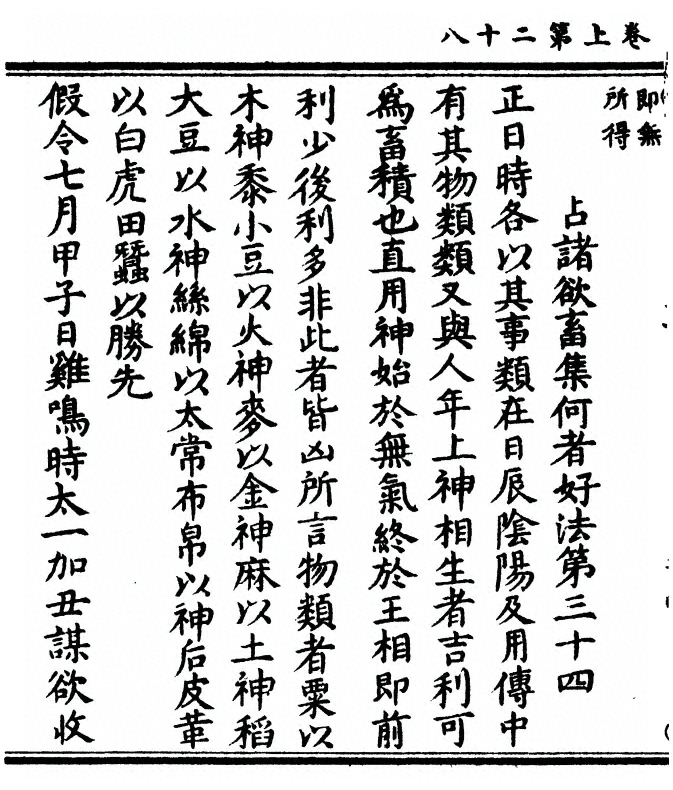 八十二第上卷
即無
所得
占諸欲畜集何者好法第三十四
正日時各以其事類在日辰陰陽及用傳中
有其物類類又與人年上神相生者吉利可
為畜積也直用神始於無氣終於王相即前
利少後利多非此者皆凶所言物類者粟以
木神黍小豆以火神麥以金神麻以土神稻
大豆以水神絲綿以太常布帛以神后皮革
以白虎田蠶以勝先
假令七月甲子日雞鳴時太一加丑謀欲收